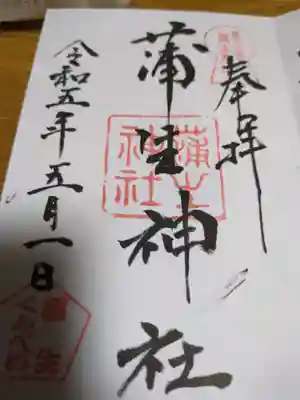 奉拝
蒲生神社
蒲生
神社
令和五年五月一日